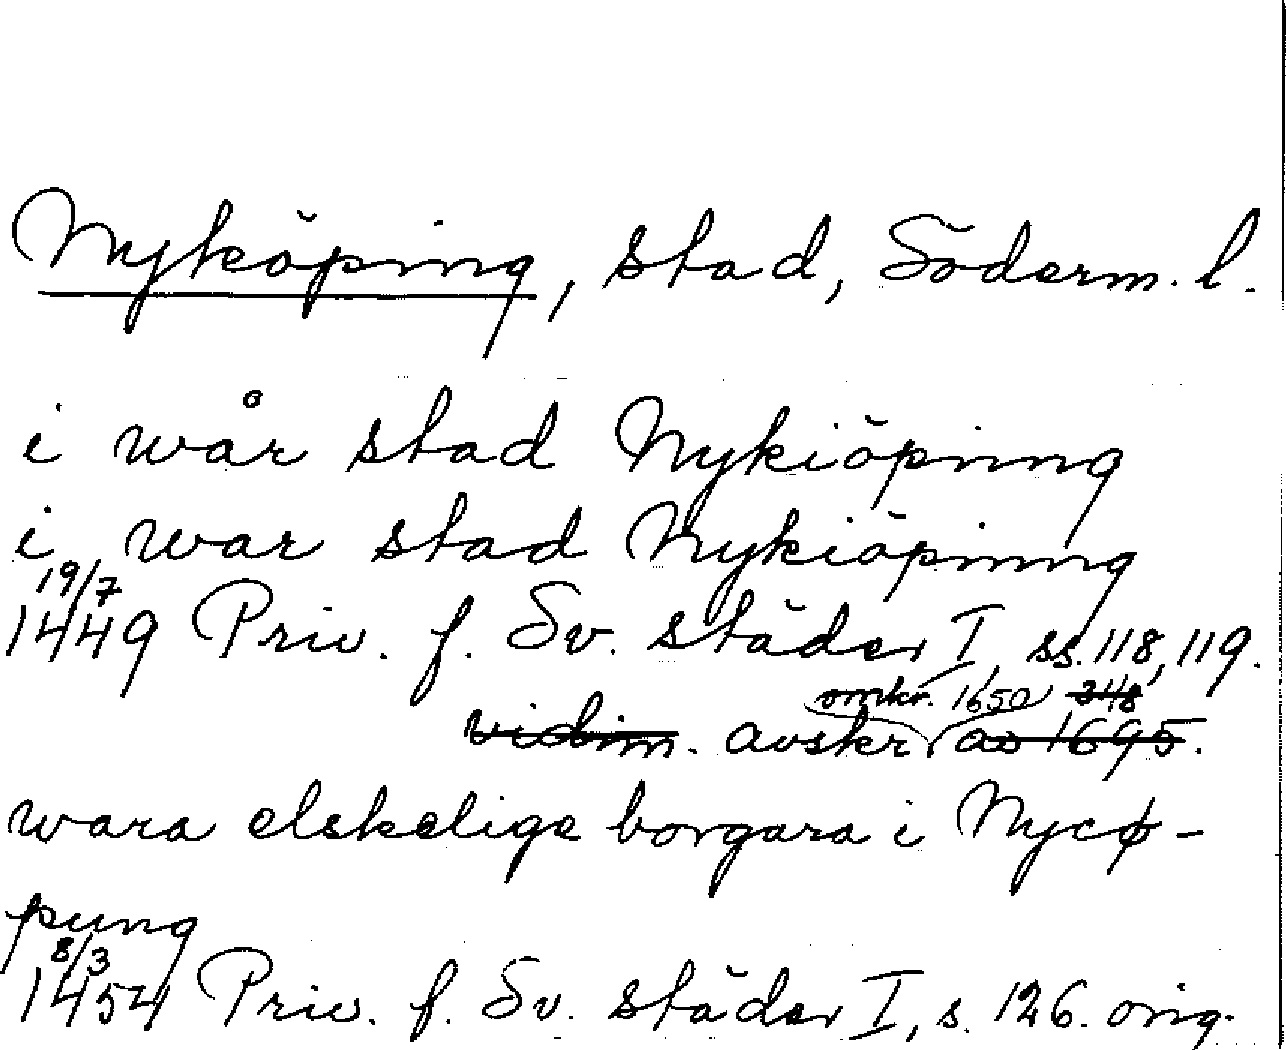 Nyköping, stad, Söderm. l.
i wår stad Nykiöpning
i war stad Nykiöpning
19/7
1449 Priv. f. Sv. städer I, ss. 118, 119.
omkr. 1650
vidim. avskr. ao 1695.
wara elskelige borgara i Nycø-
pung
8/3
1454 Priv. f. Sv. städer I, s. 126. orig.